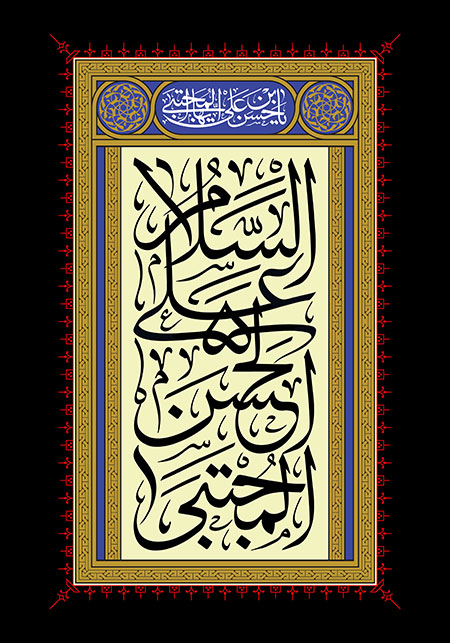 یا حسن ابن علی ایها المجتبی
السلام
علی
الحسن
المجتبی